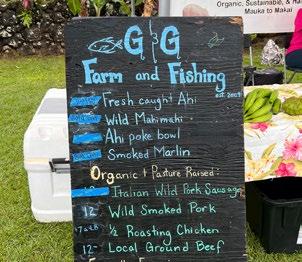 Organic, Sustainable, & Ha
Mauka to Makai
G & G
Farm and Fishing
est. 2009
Fresh caught Ahi
Wild Mahimahi
Ahi poke bowl
Smoked Marlin
Organic + Pasture Raised:
Italian Wild Pork Sausage
12- Wild Smoked Pork
½ Roasting Chicken
12- Local Ground Beef